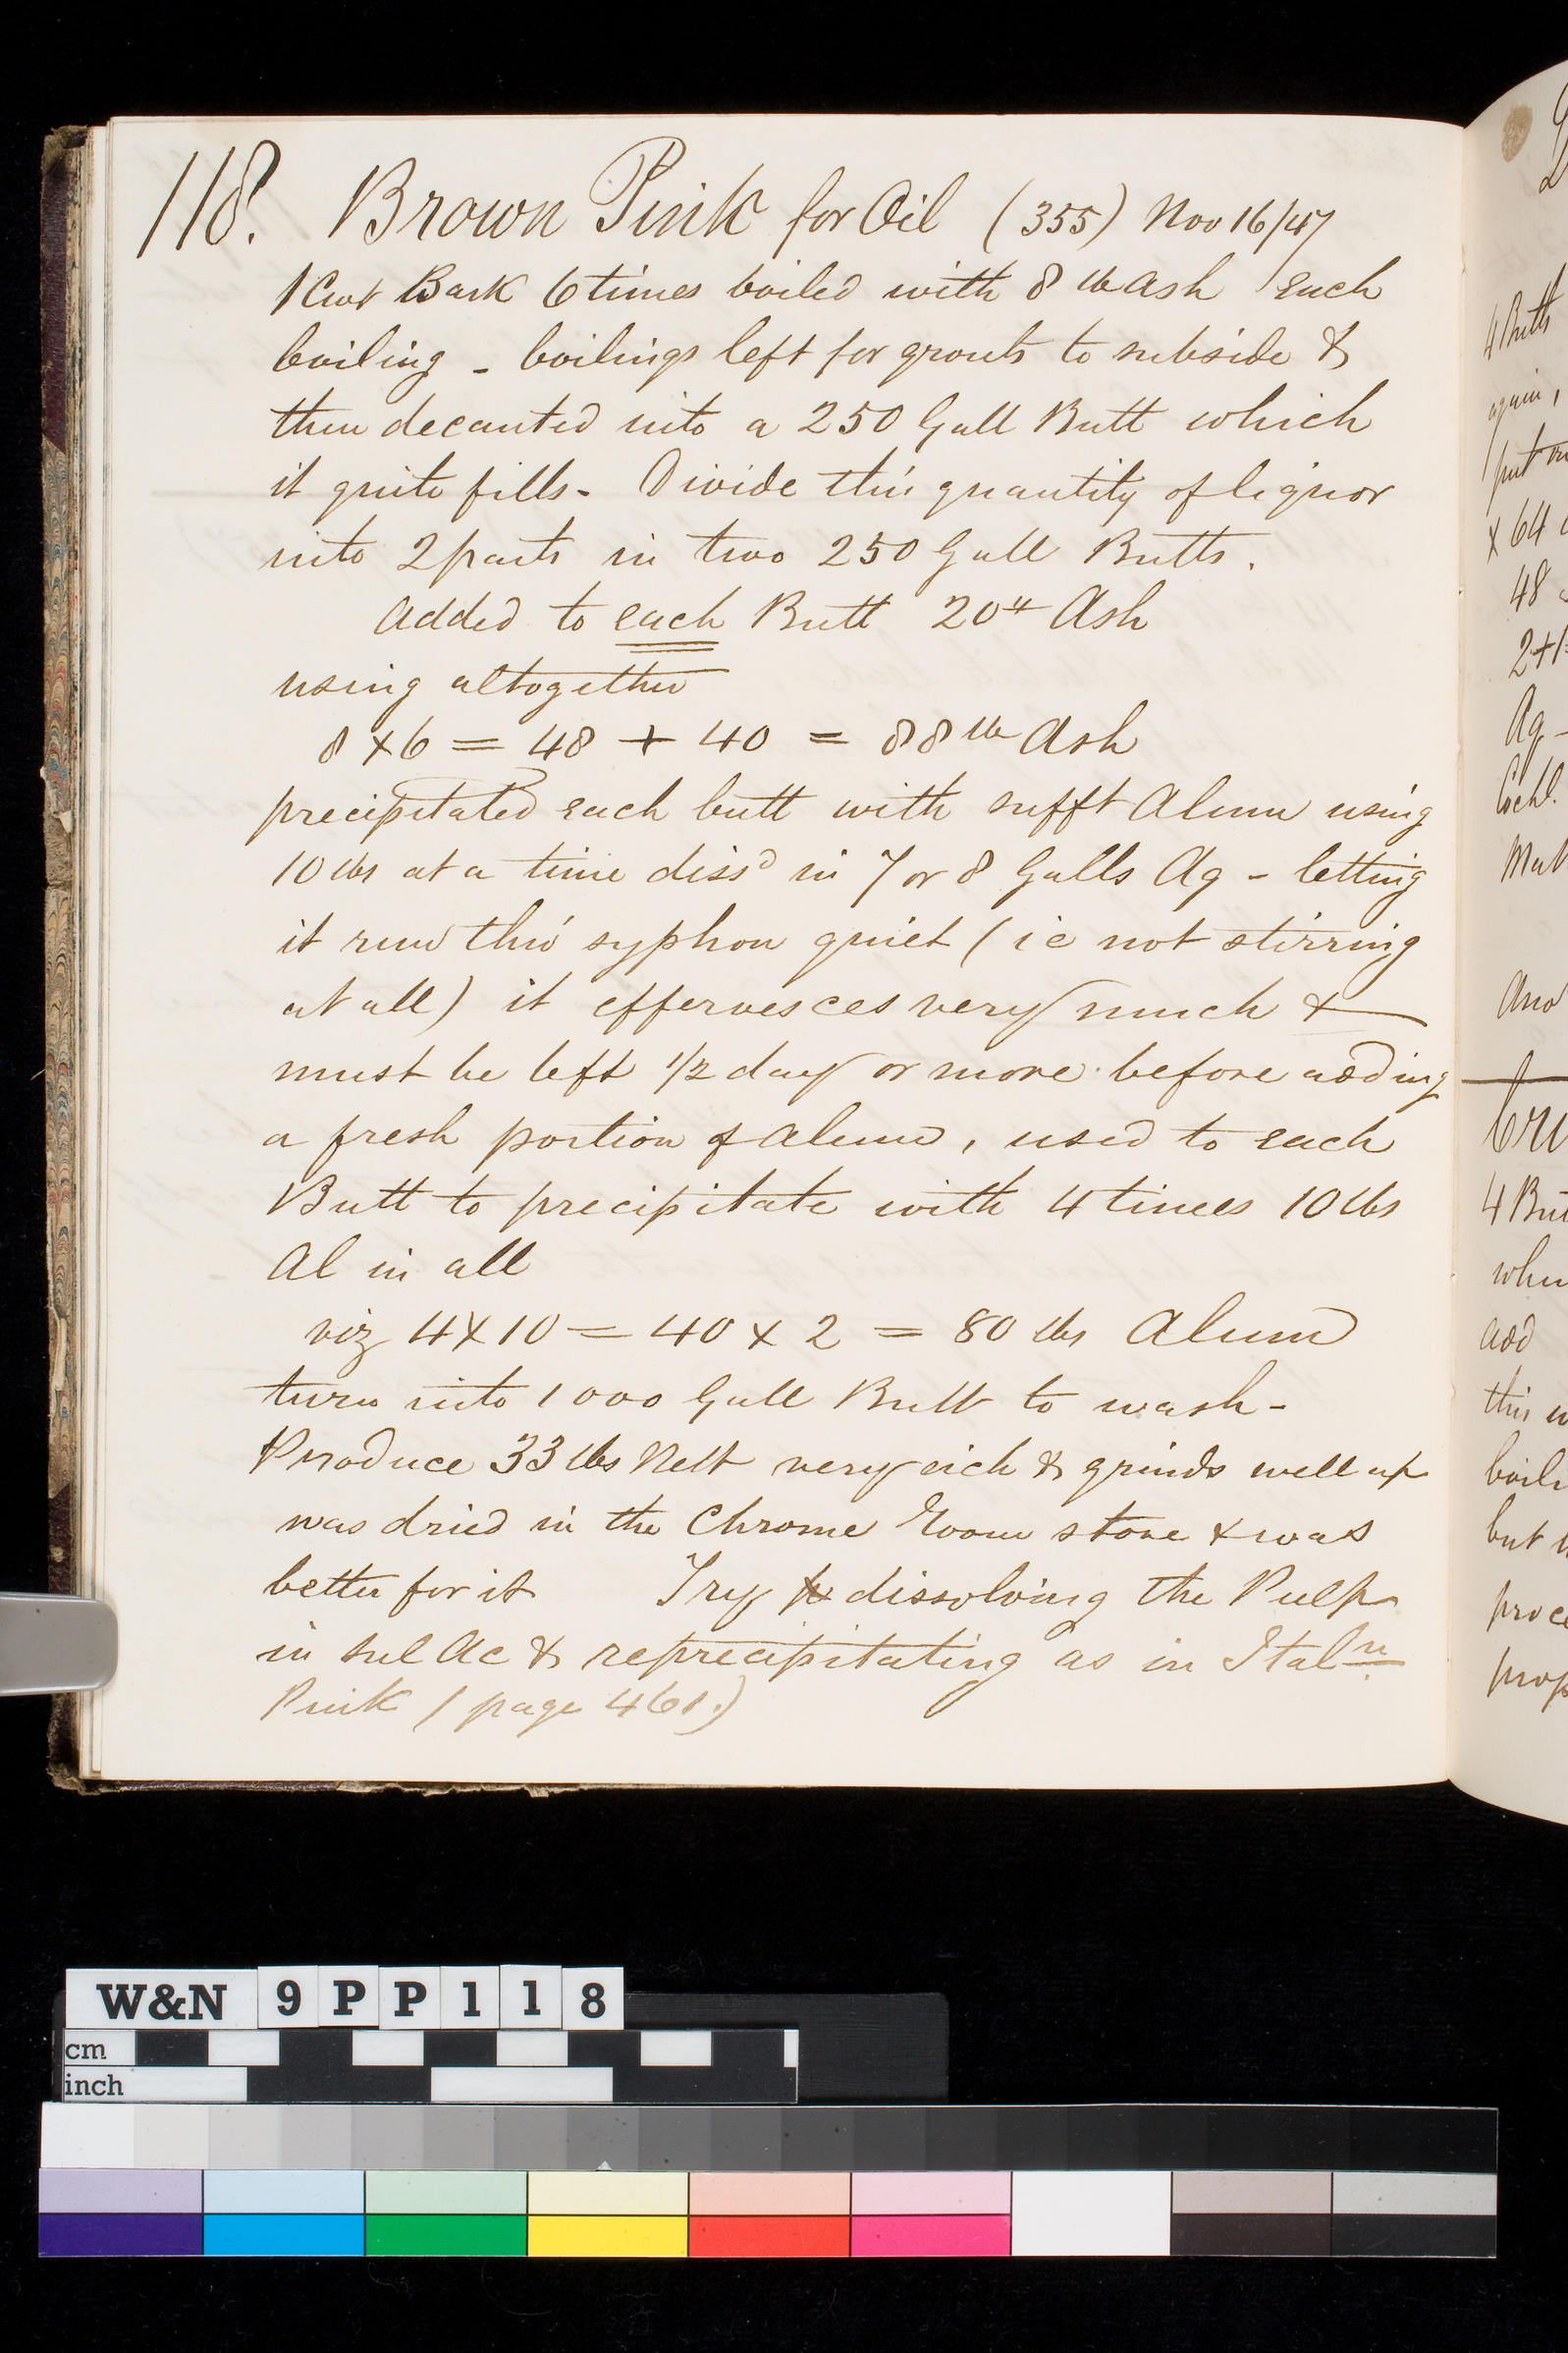 118. Brown Pink for Oil (355) Nov 16/47
1 Cwt Bark 6 times boiled with 8 lb Ash each
boiling - boilings left for grouts to subside &
then decanted into a 250 Gall Butt which
it quite fills - Divide this quantity of liquor
into 2 parts in two 250 Gall Butts.
Added to each Butt 20 lb Ash
using altogether
8 x 6 = 48 + 40 = 88 lb Ash
precipitated each butt with sufft Alum using
10 lbs at a time dissd in 7 or 8 Galls Aq - letting
it run thro' syphon quiet (ie not stirring
at all) it effervesces very much &
must be left 1/2 day or more before adding
a fresh portion of Alum, used to each
Butt to precipitate with 4 times 10 lbs
Al in all
viz 4 x 10 = 40 x 2 = 80 lbs Alum
turn into 1000 Gall Butt to wash -
Produce 33 lbs Nett very rich & grinds well up
was dried in the Chrome Room stove & was
better for it Try dissolving the Pulp
in Sul Ac & reprecipitating as in Italn
Pink (page 461.)
4 Butts
again,
put on
x 64
48
2+1
Aq -
Cochl.
4 But
add
this
but
proce
prop
W&N 9PP118
cm
inch